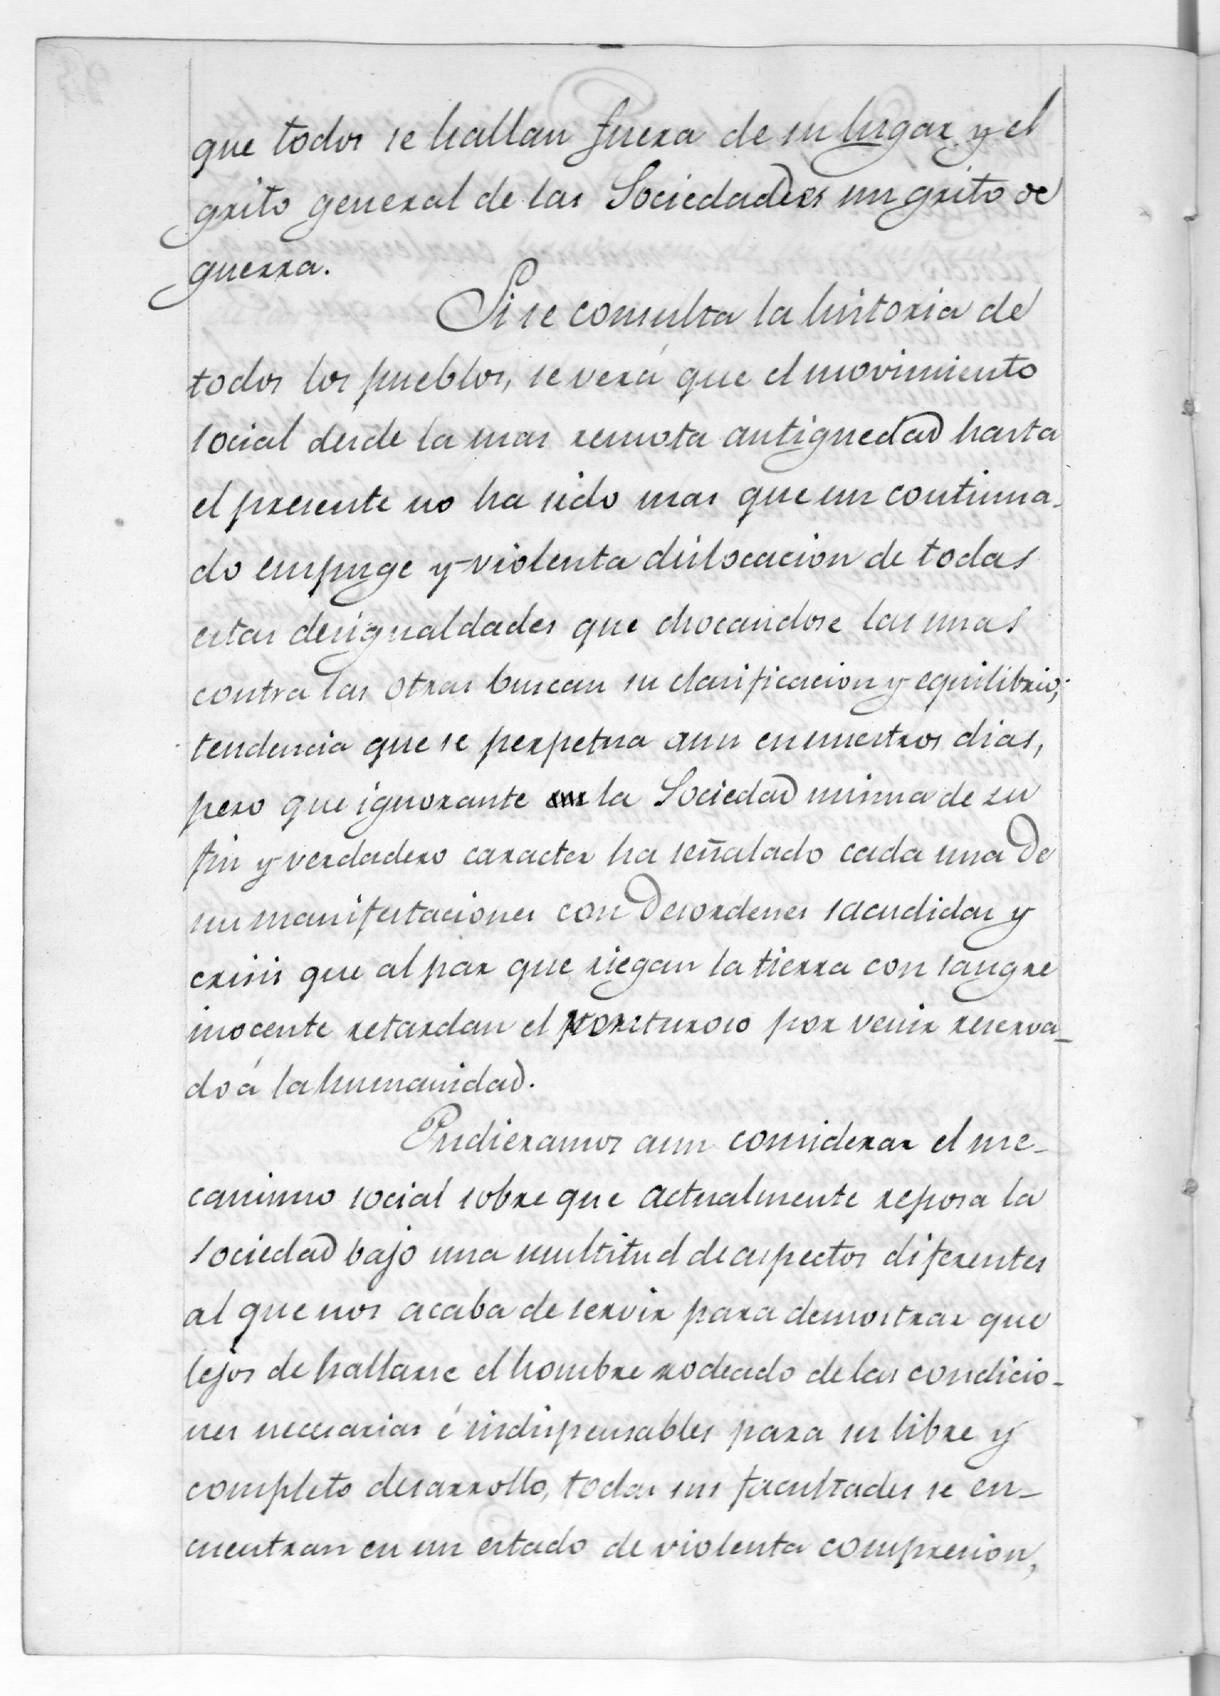 que todos se hallan fuera de su lugar, y el
grito general de las Sociedades es un grito de
guerra.
Si se consulta la historia de
todos los pueblos, se verá que el movimiento
social desde la mas remota antiguedad hasta
el presente no ha sido mas que un continua-
do empuge y violenta dislocacion de todas
estas desigualdades que chocandose las unas
contra las otras buscan su clasificacion y equilibrio;
tendencia que se perpetua aun en nuestros dias,
pero que ignorante la Sociedad misma de su
fin y verdadero caracter ha señalado cada una de
sus manifestaciones con desordenes sacudidas y
crisis que al par que riegan la tierra con sangre
inocente retardan el porvenir reserva-
do á la humanidad.
Pudieramos aun considerar el me-
canismo social sobre que actualmente reposa la
sociedad bajo una multitud de aspectos diferentes
al que nos acaba de servir para demostrar que
lejos de hallarse el hombre rodeado de las condicio-
nes necesarias é indispensables para su libre y
completo desarrollo, todas sus facultades se en-
cuentran en un estado de violenta compresion,